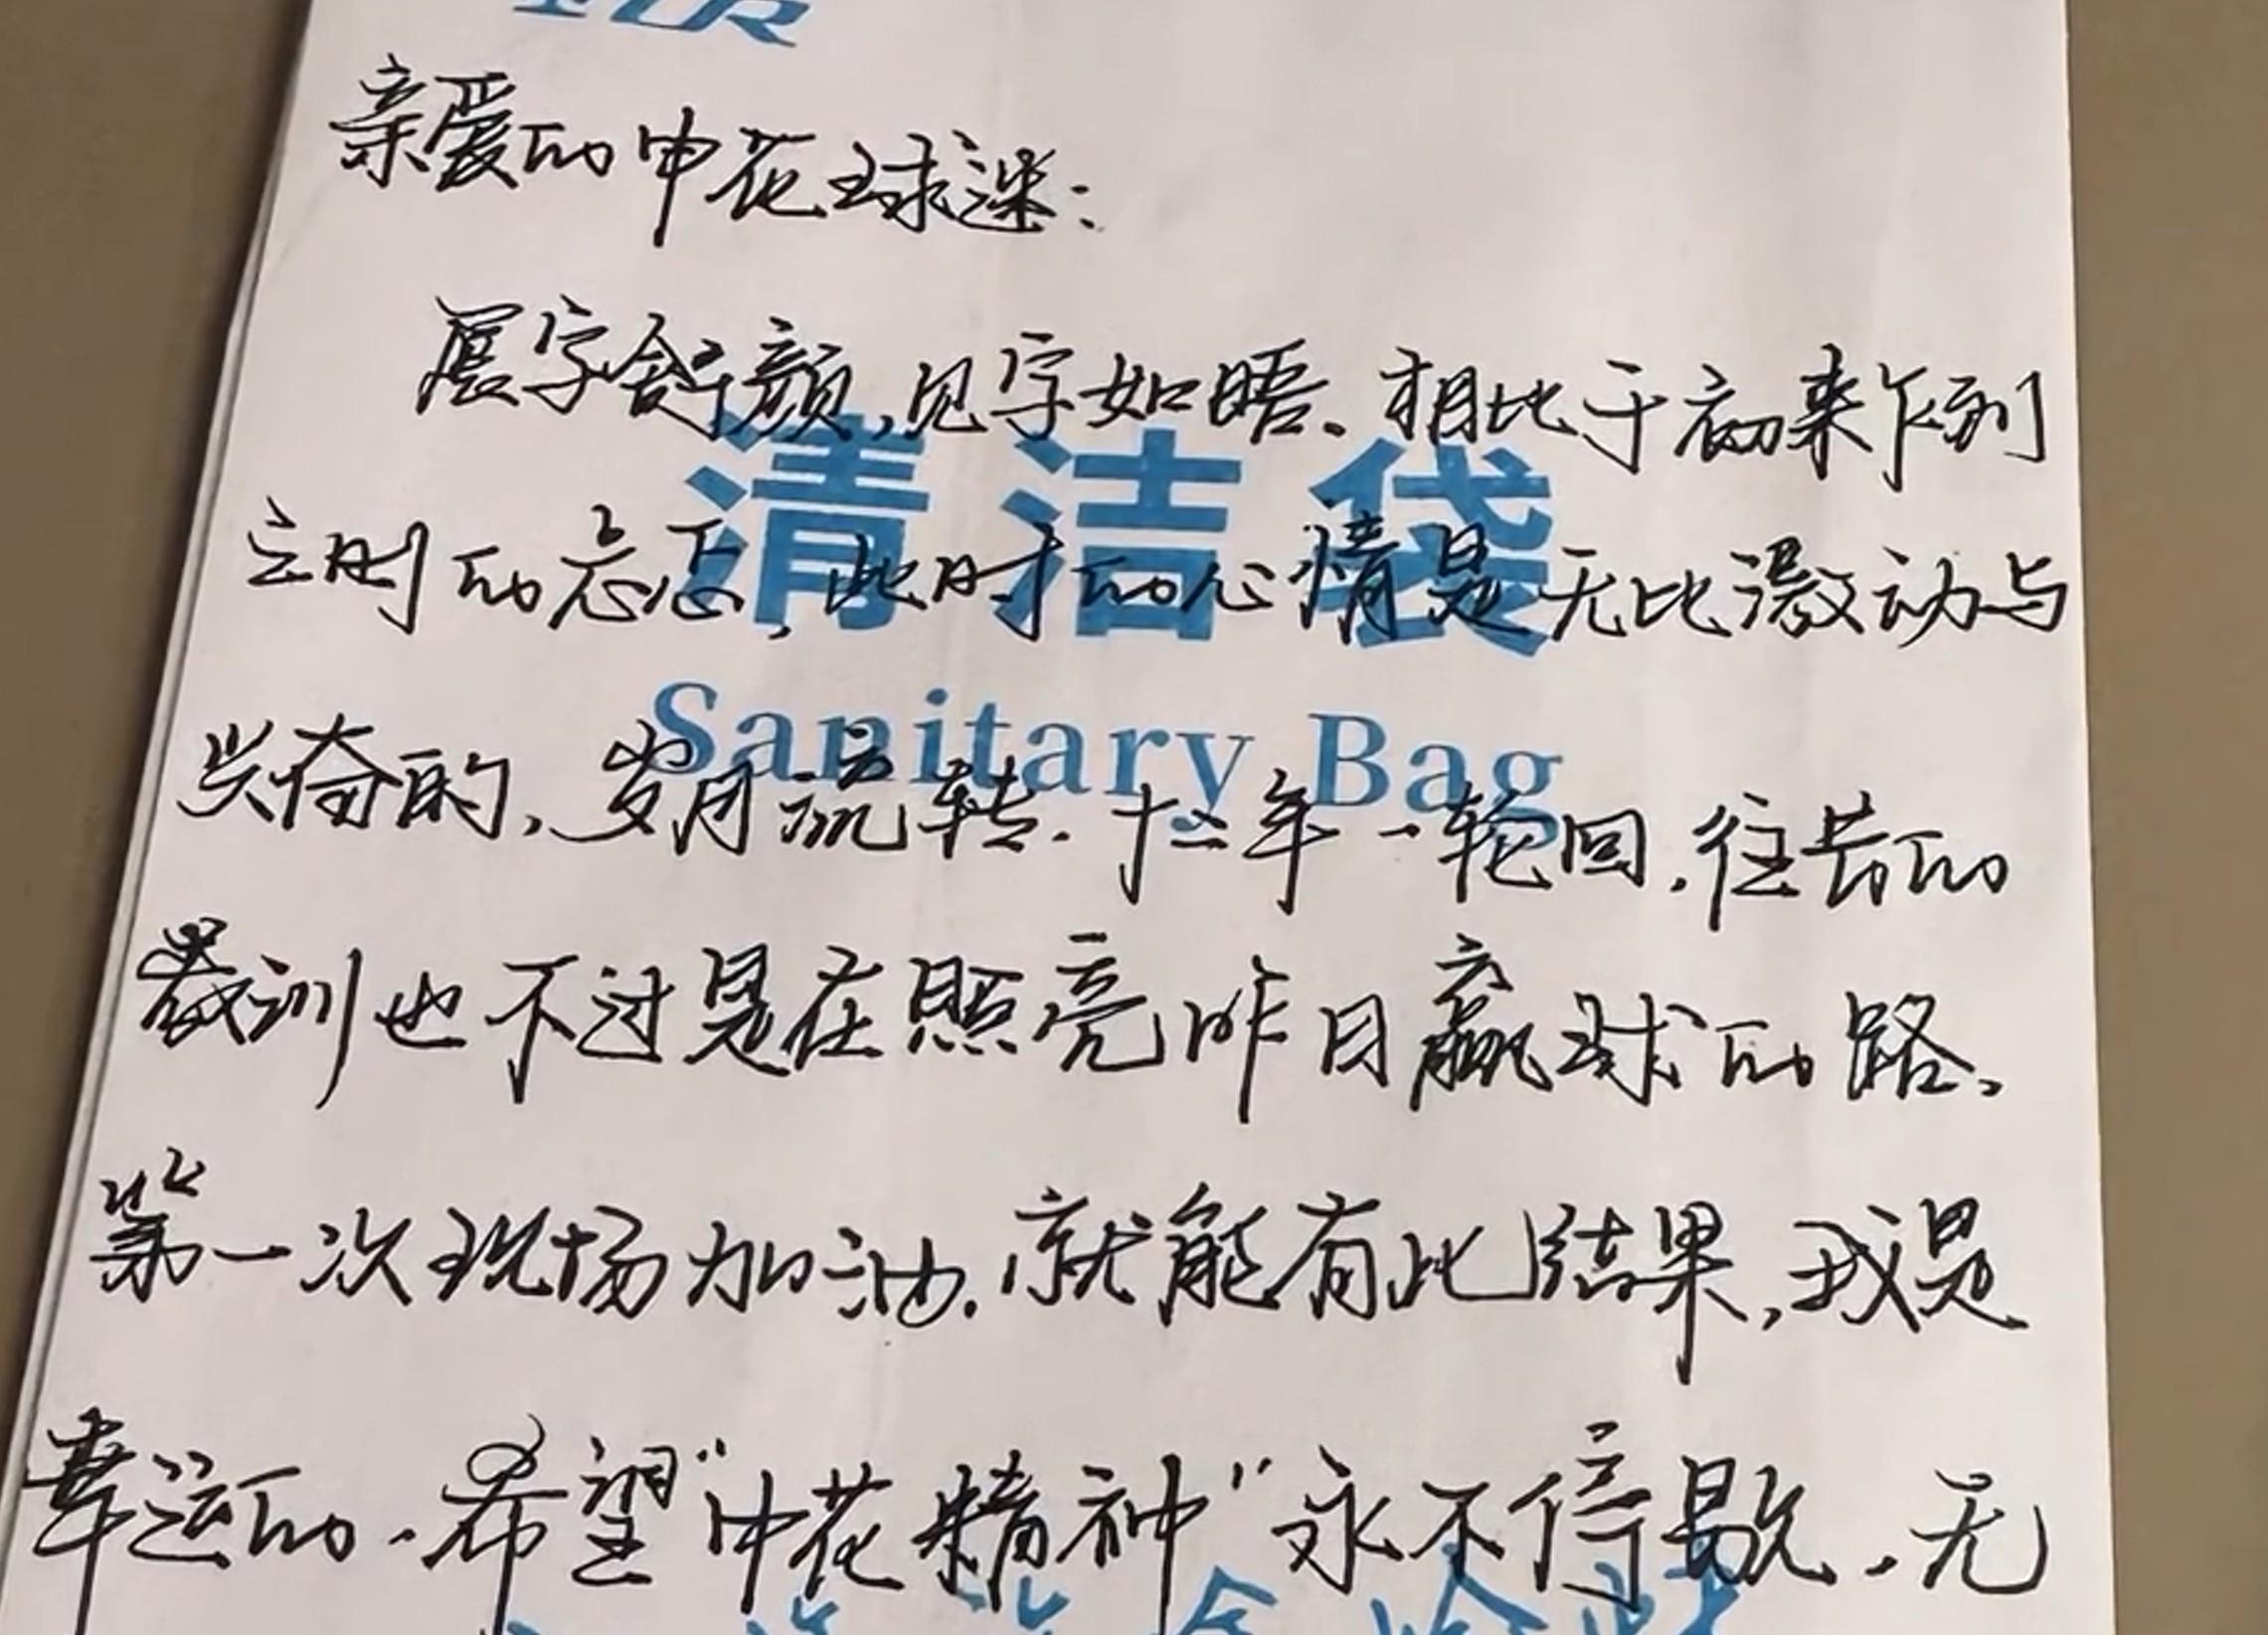 亲爱的申花球迷：
展字舒颜，见字如晤。相比于初来乍到
立时的忐忑，此时的心情是无比激动与
清洁袋
Sanitary Bag
兴奋的，岁月流转.十二年一轮回，往昔的
教训也不过是在照亮昨日赢球的路。
第一次现场加油.就能有此结果，我是
幸运的.希望“申花精神”永不停歇.无